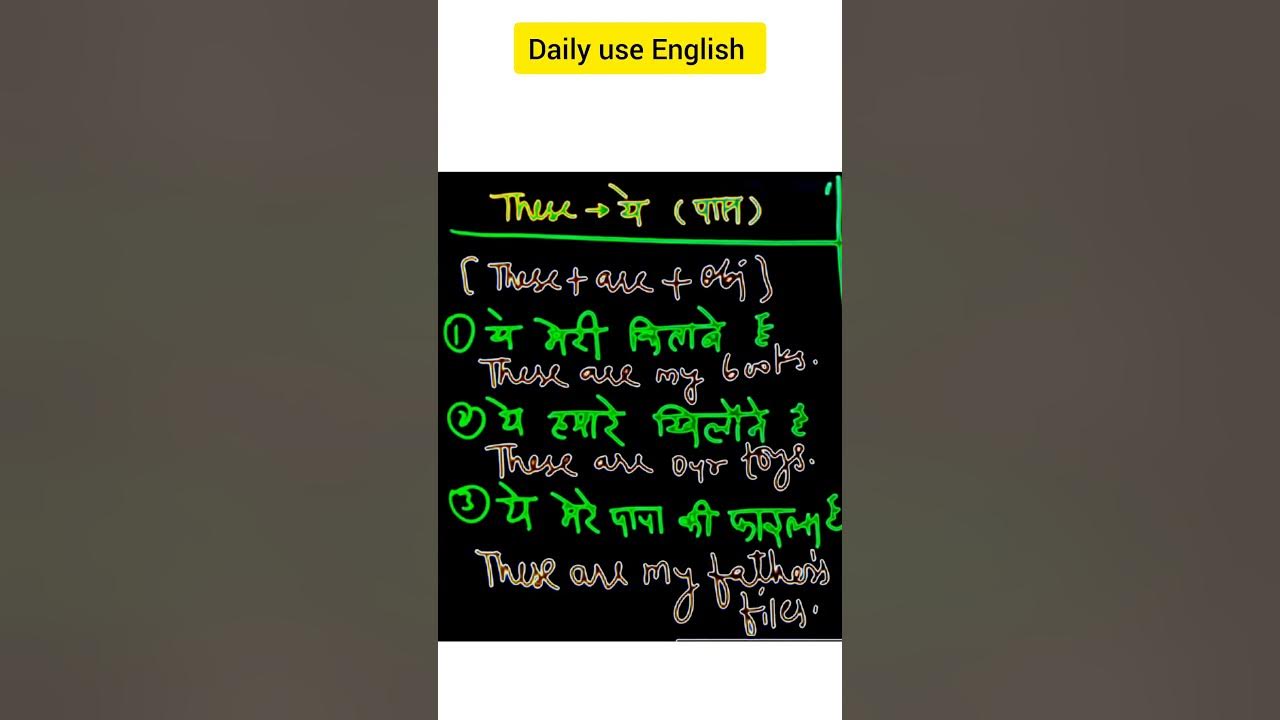 Daily use English
These → ये (पास)
[These + are + obj]
① ये मेरी किताबे है
These are my books.
② ये हमारे खिलौने है
These are our toys.
③ ये मेरे पापा की फाइल्स है
These are my father's
files.